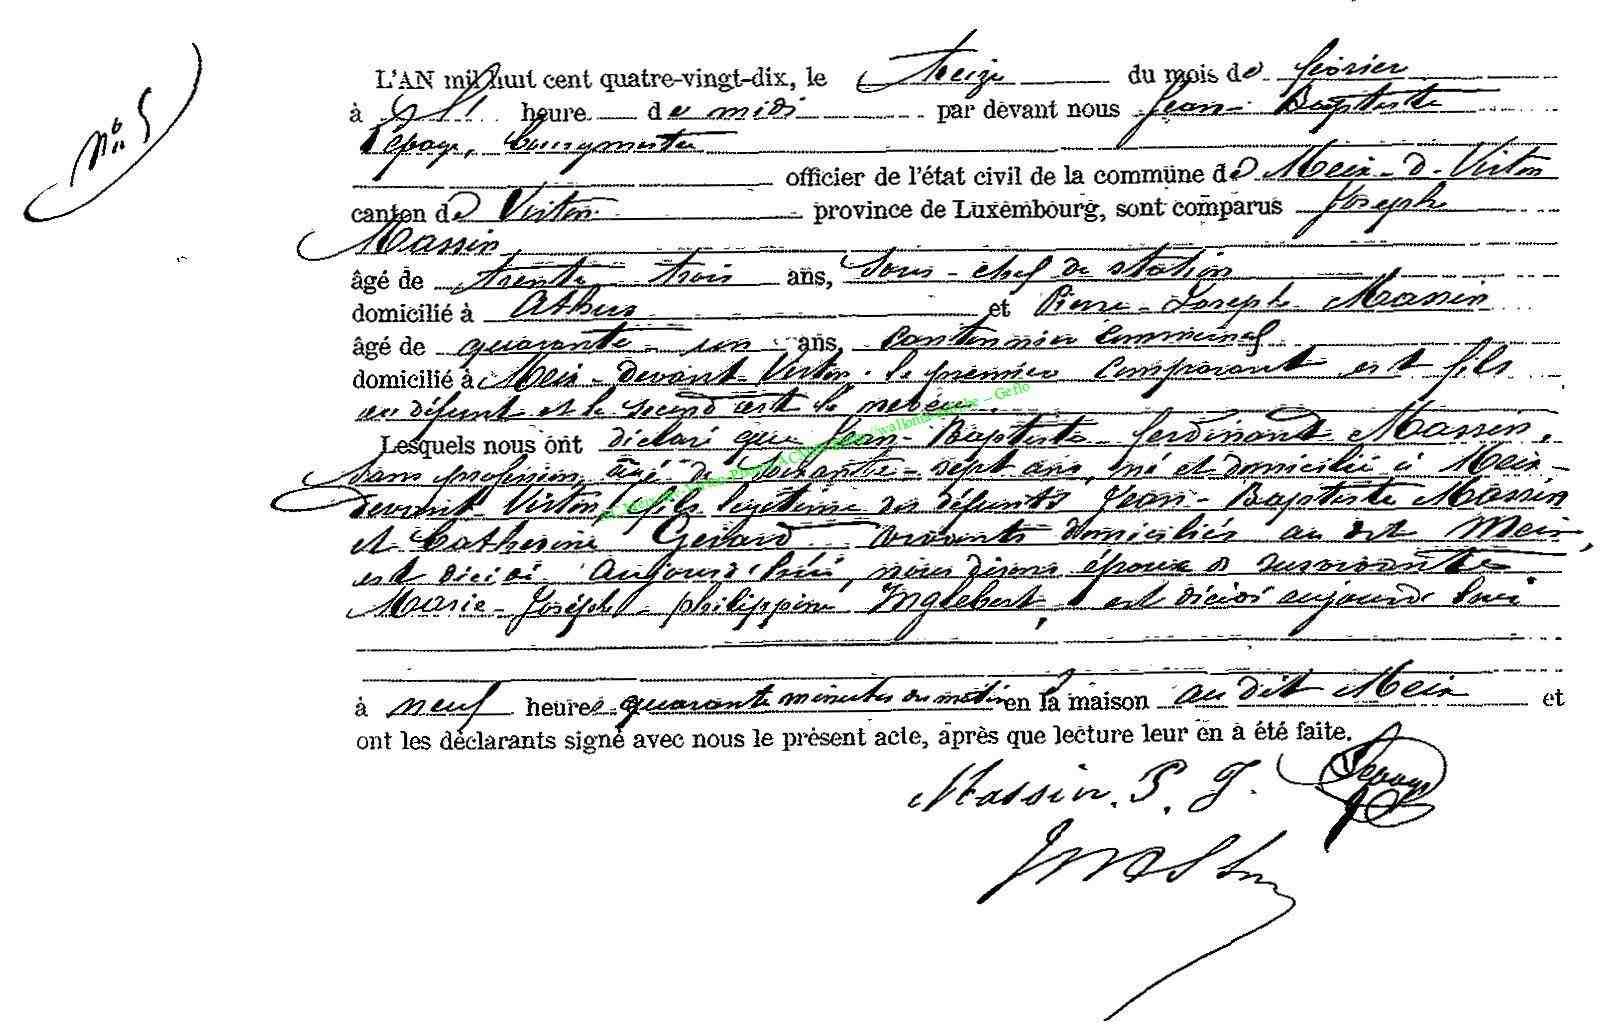 N° 5
L'AN mil huit cent quatre-vingt-dix, le treize du mois de février
à heure de midi par devant nous Jean-Baptiste
Lepage, Bourgmestre
officier de l'état civil de la commune de Meix-d-Virton
canton de Virton province de Luxembourg, sont comparus Joseph
Massin
âgé de trente-trois ans, Sous-chef de station
domicilié à Athus et Pierre-Joseph Massin
âgé de quarante-un ans, cantonnier communal
domicilié à Meix-devant-Virton. le premier comparant est fils
au défunt et le second est le neveu.
Lesquels nous ont déclaré que Jean-Baptiste-Ferdinand Massin,
Sans profession, âgé de soixante-sept ans, né et domicilié à Meix-
devant-Virton, fils légitime des défunts Jean-Baptiste Massin
et Catherine Gerard vivants domiciliés au dit Meix,
est décédé aujourd'hui, nous disons époux survivante
Marie-Joséphe-philippine Inglebert, est décédé aujourd'hui
à neuf heures quarante minutes du matin en la maison au dit Meix et
ont les déclarants signé avec nous le présent acte, après que lecture leur en a été faite.
Massin. P. J. Lepage
J Massin